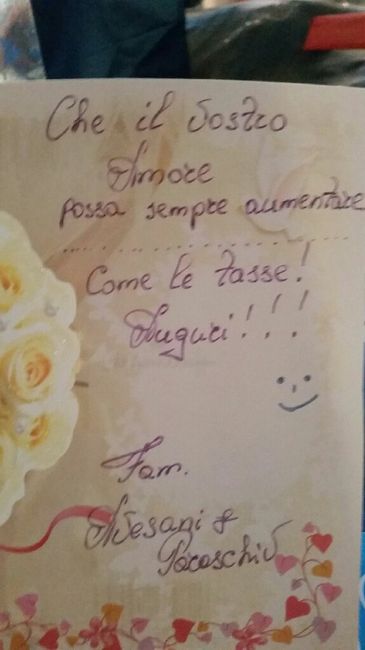 Che il Vostro
Amore
possa sempre aumentare
Come le tasse!
Auguri!!!
Fam.
&
Paraschiv